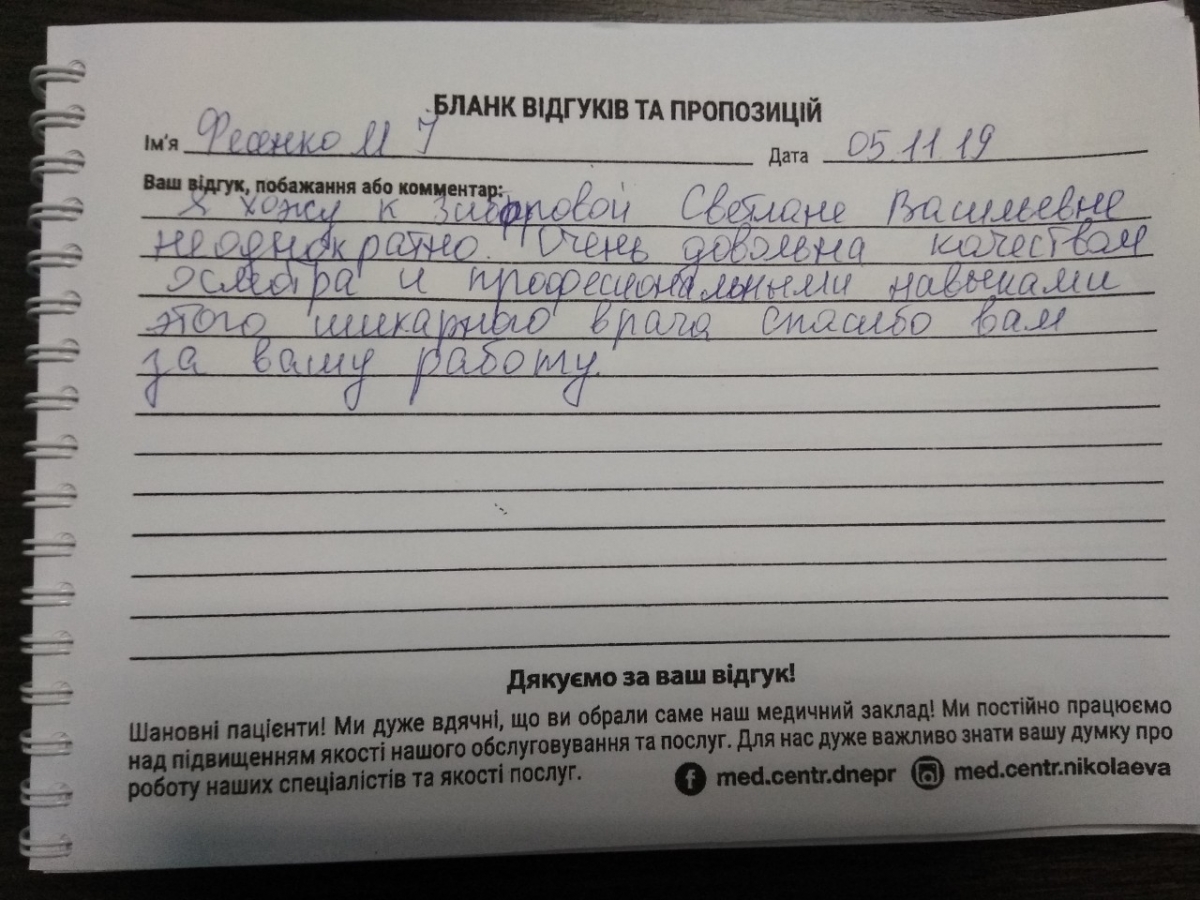 БЛАНК ВІДГУКІВ ТА ПРОПОЗИЦІЙ
Ім'я Фесенко И
Дата 05.11.19
Ваш відгук, побажання або комментар:
Я хожу к Светлане Васильевне
неоднократно. Очень довольна качеством
осмотра и професиональными навыками
этого шикарного врача спасибо вам
за вашу работу.
Дякуємо за ваш відгук!
Шановні пацієнти! Ми дуже вдячні, що ви обрали саме наш медичний заклад! Ми постійно працюємо
над підвищенням якості нашого обслуговування та послуг. Для нас дуже важливо знати вашу думку про
роботу наших спеціалістів та якості послуг.
med.centr.dnepr med.centr.nikolaeva